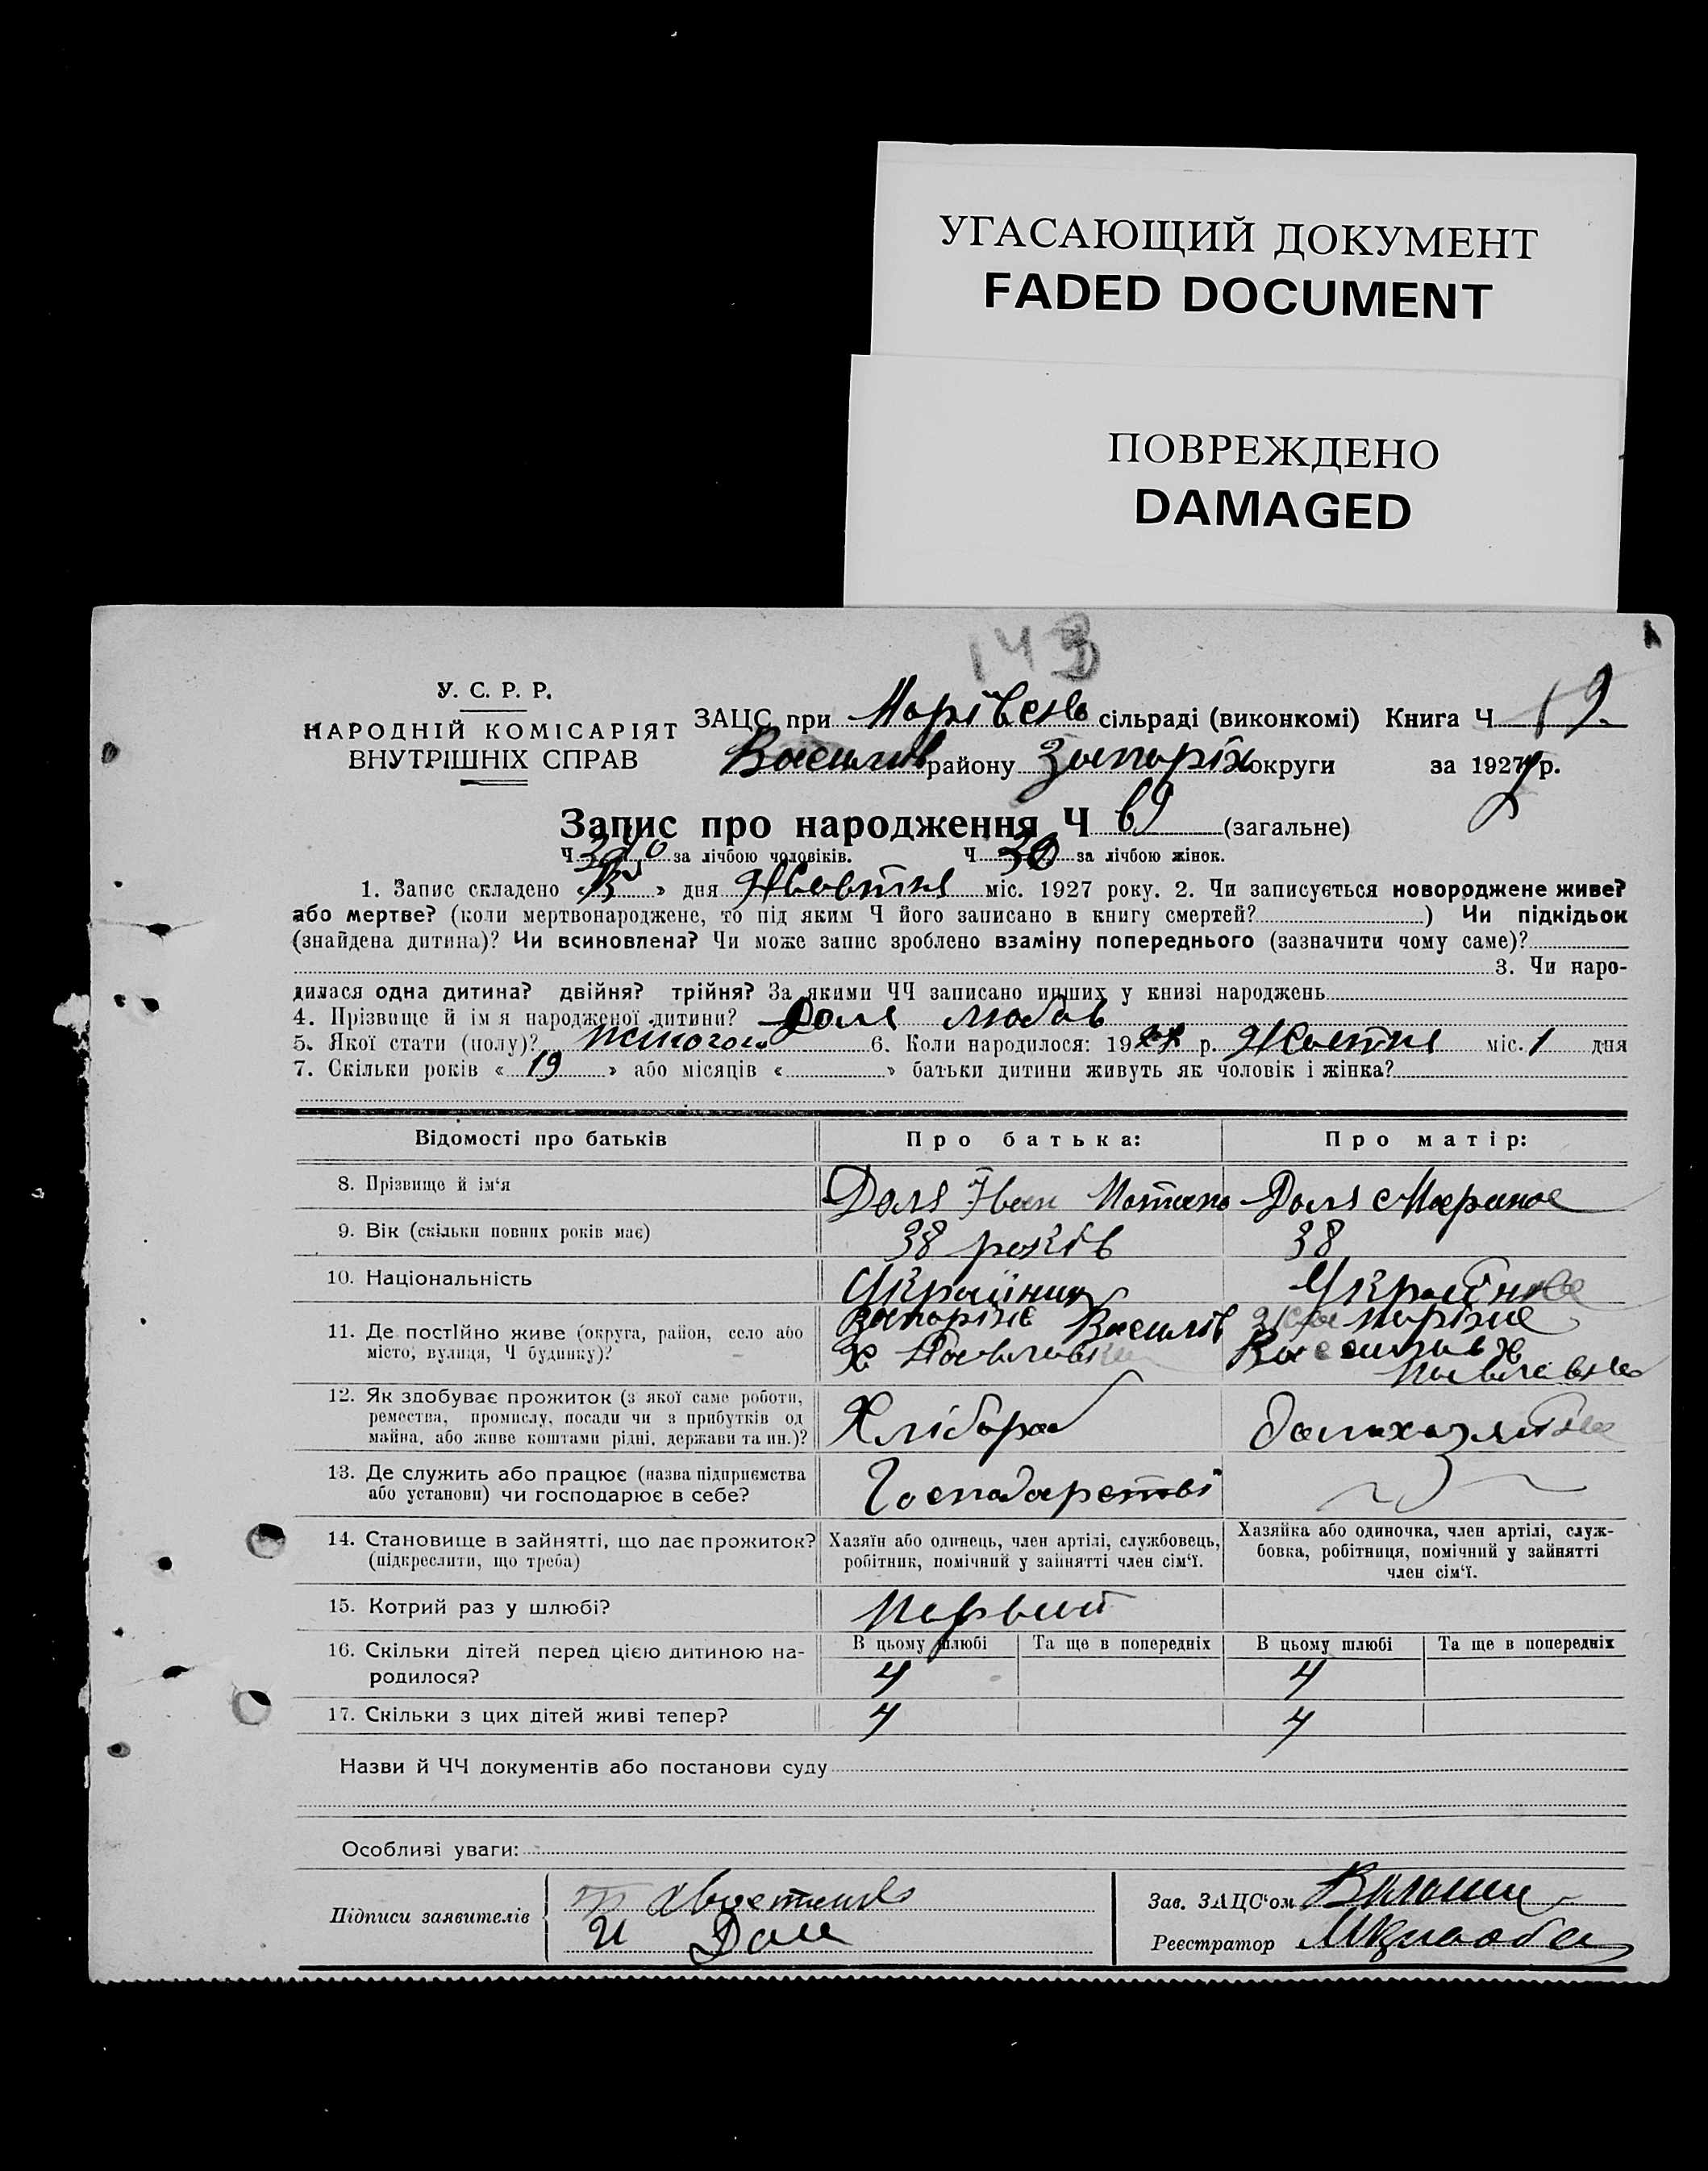 УГАСАЮЩИЙ ДОКУМЕНТ
FADED DOCUMENT
ПОВРЕЖДЕНО
DAMAGED
143
У. С. Р. Р.
НАРОДНІЙ КОМІСАРІЯТ
ВНУТРІШНІХ СПРАВ
ЗАЦС при сільраді (виконкомі) Книга Ч 19.
Василів району Запоріж округи за 1927 р.
Запис про народження Ч (загальне)
Ч за лічбою чоловіків. Ч 30 за лічбою жінок.
1. Запис складено « » дня Жовтня міс. 1927 року. 2. Чи записується новороджене живе?
або мертве? (коли мертвонароджене, то під яким Ч його записано в книгу смертей? ) Чи підкідьок
(знайдена дитина)? Чи всиновлена? Чи може запис зроблено взаміну попереднього (зазначити чому саме)?
3. Чи наро-
дилася одна дитина? двійня? трійня? За якими ЧЧ записано инших у книзі народжень
4. Прізвище й ім я народженої дитини? Доля Любов
5. Якої стати (полу)? жіночого 6. Коли народилося: 1927 р. Жовтня міс. 1 дня
7. Скільки років « 19 » або місяців « » батьки дитини живуть як чоловік і жінка?
Відомості про батьків Про батька: Про матір:
8. Прізвище й ім‘я Доля Іван Доля Марина
9. Вік (скільки повних років має) 38 років 38
10. Національність Українець Українка
11. Де постійно живе (округа, район, село або Запоріжє Василів Запоріжє
місто, вулиця, Ч будинку)? Х Василів Х
12. Як здобуває прожиток (з якої саме роботи,
ремества, промислу, посади чи з прибутків од
майна, або живе коштами рідні, держави та ин.)? Хлібороб
13. Де служить або працює (назва підприємства
або установи) чи господарює в себе? Господарстві
14. Становище в зайнятті, що дає прожиток? Хазяїн або одинець, член артілі, службовець, Хазяйка або одиночка, член артілі, служ-
(підкреслити, що треба) робітник, помічний у зайнятті член сім‘ї. бовка, робітниця, помічний у зайнятті
член сім‘ї.
15. Котрий раз у шлюбі? Первий
16. Скільки дітей перед цією дитиною на- В цьому шлюбі Та ще в попередніх В цьому шлюбі Та ще в попередніх
родилося? 4 4
17. Скільки з цих дітей живі тепер? 4 4
Назви й ЧЧ документів або постанови суду
Особливі уваги:
Підписи заявителів
И Доля
Зав. ЗАЦС‘ом
Реєстратор